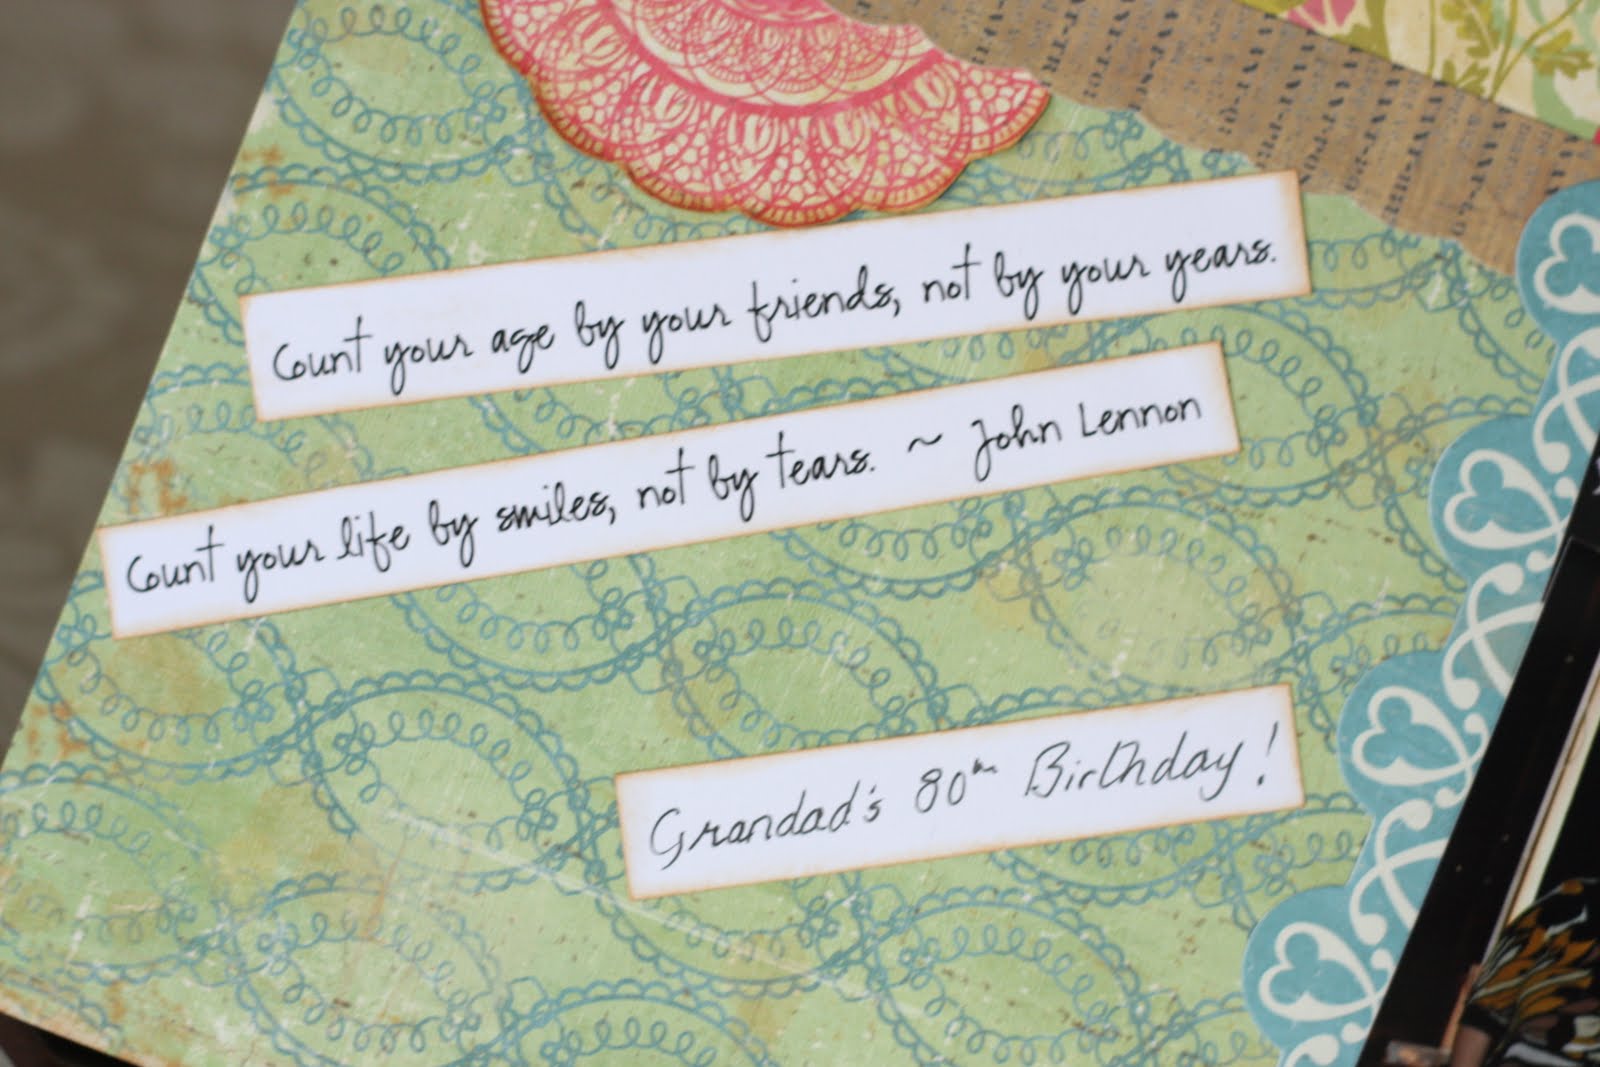 Count your age by your friends, not by your years.
Count your life by smiles, not by tears. ~ John Lennon
Grandad's 80th Birthday!